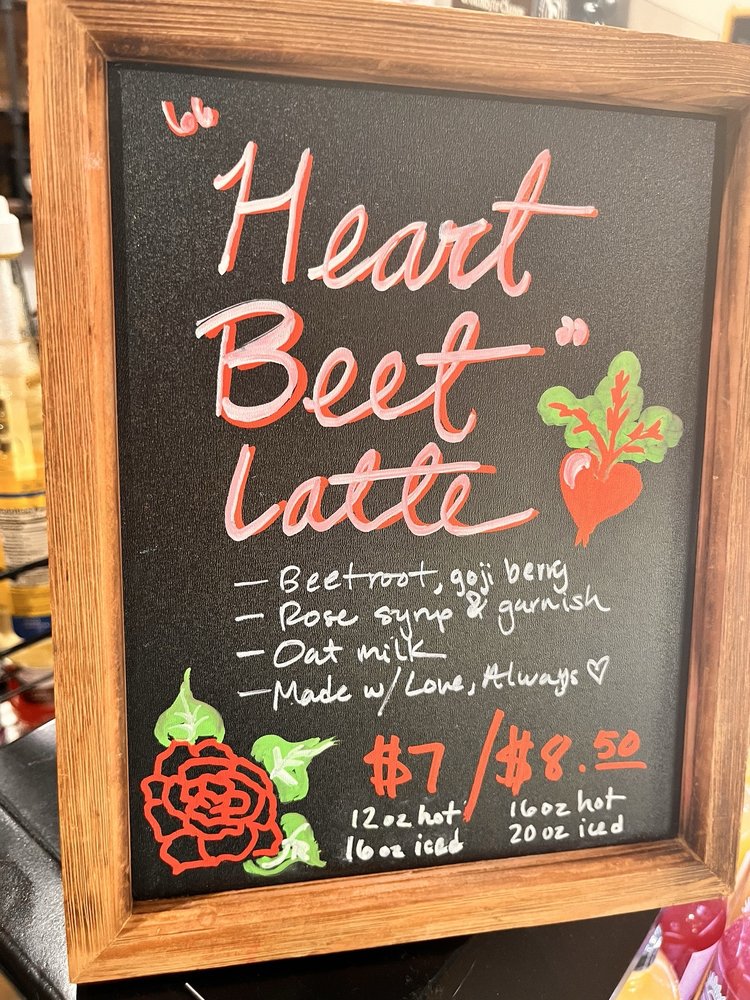 "Heart
Beet"
Latte
- Beetroot, goji berry
- Rose syrup & garnish
- Oat milk
- Made w/ Love, Always ♡
$7 / $8.50
12 oz hot 16 oz hot
16 oz iced 20 oz iced